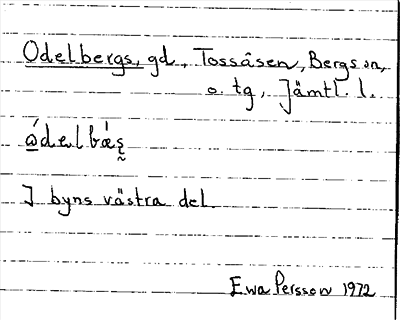 Odelbergs, gd., Tossåsen, Bergs sn,
o. tg, Jämtl. l.
ɷ́delbæ̀ʂ̰
I byns västra del.
Ewa Persson 1972